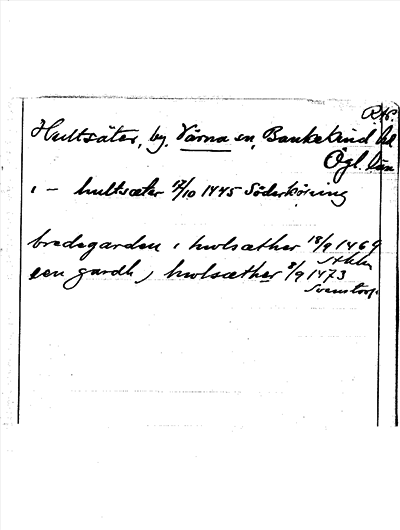 RAP.
Hultsäter, by. Vårna sn, Bankekind hd
Ögl. län
i – hultsæter 17/10 1445 Söderköping
bredegarden i hwlsæther 18/9 1469
Sthlm
een gardh j hwlsæther 8/9 1473
Svenstorp.